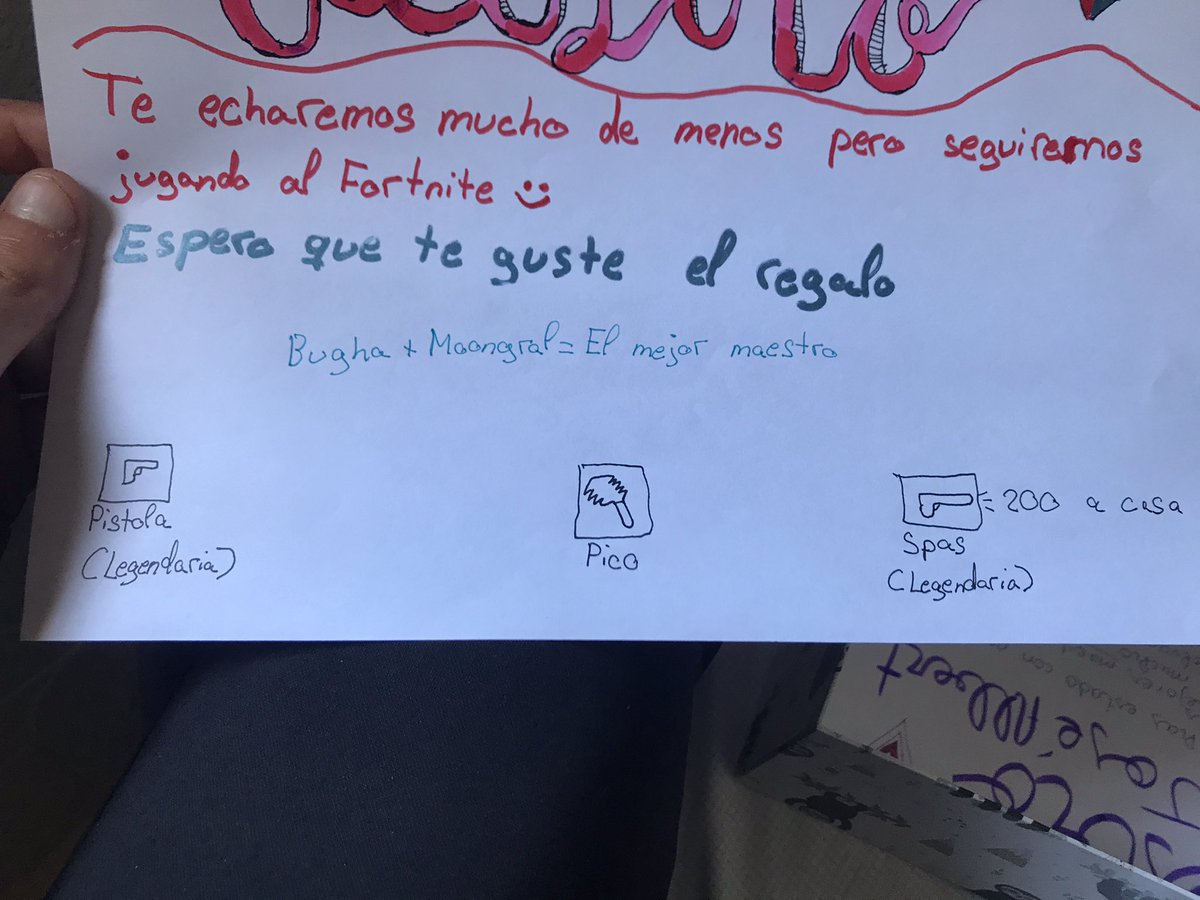 Te echaremos mucho de menos pero seguiremos
jugando al Fortnite
Espero que te guste el regalo
Bugha + Moongral = El mejor maestro
Pistola
(Legendaria)
Pico
200 a casa
Spas
(Legendaria)
has estado con
Albert